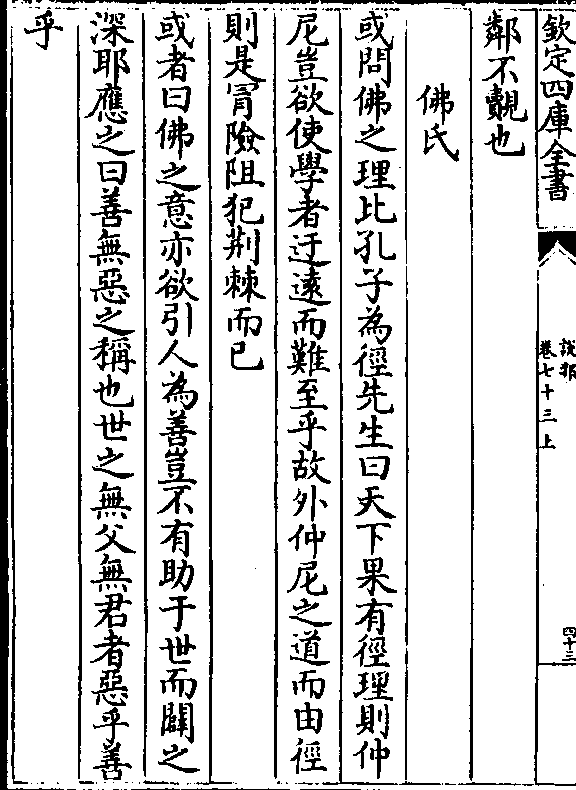 欽定四庫全書
說郛
卷七十三上
四十三
鄰不覿也
佛氏
或問佛之理比孔子為徑先生曰天下果有徑理則仲
尼豈欲使學者迂遠而難至乎故外仲尼之道而由徑
則是冒險阻犯荆棘而已
或者曰佛之意亦欲引人為善豈不有助于世而闢之
深耶應之曰善無惡之稱也世之無父無君者惡乎善
乎